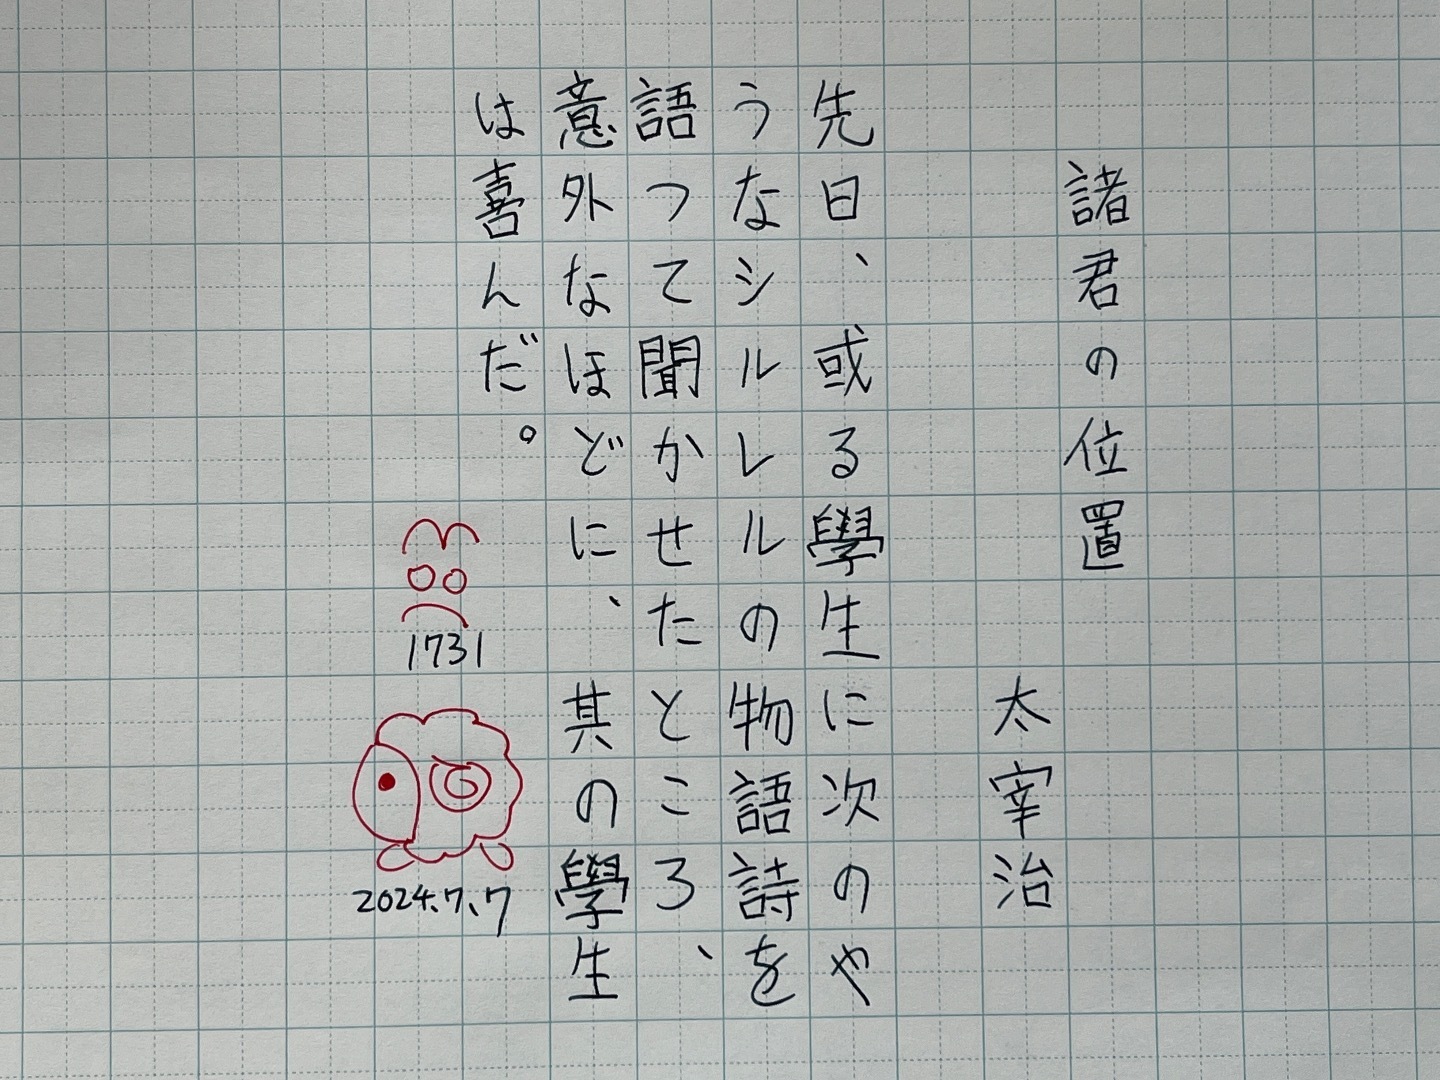 諸君の位置
太宰治
先日、或る學生に次のや
うなシルレルの物語詩を
語つて聞かせたところ、
意外なほどに、其の學生
は喜んだ。
1731
2024.7.7